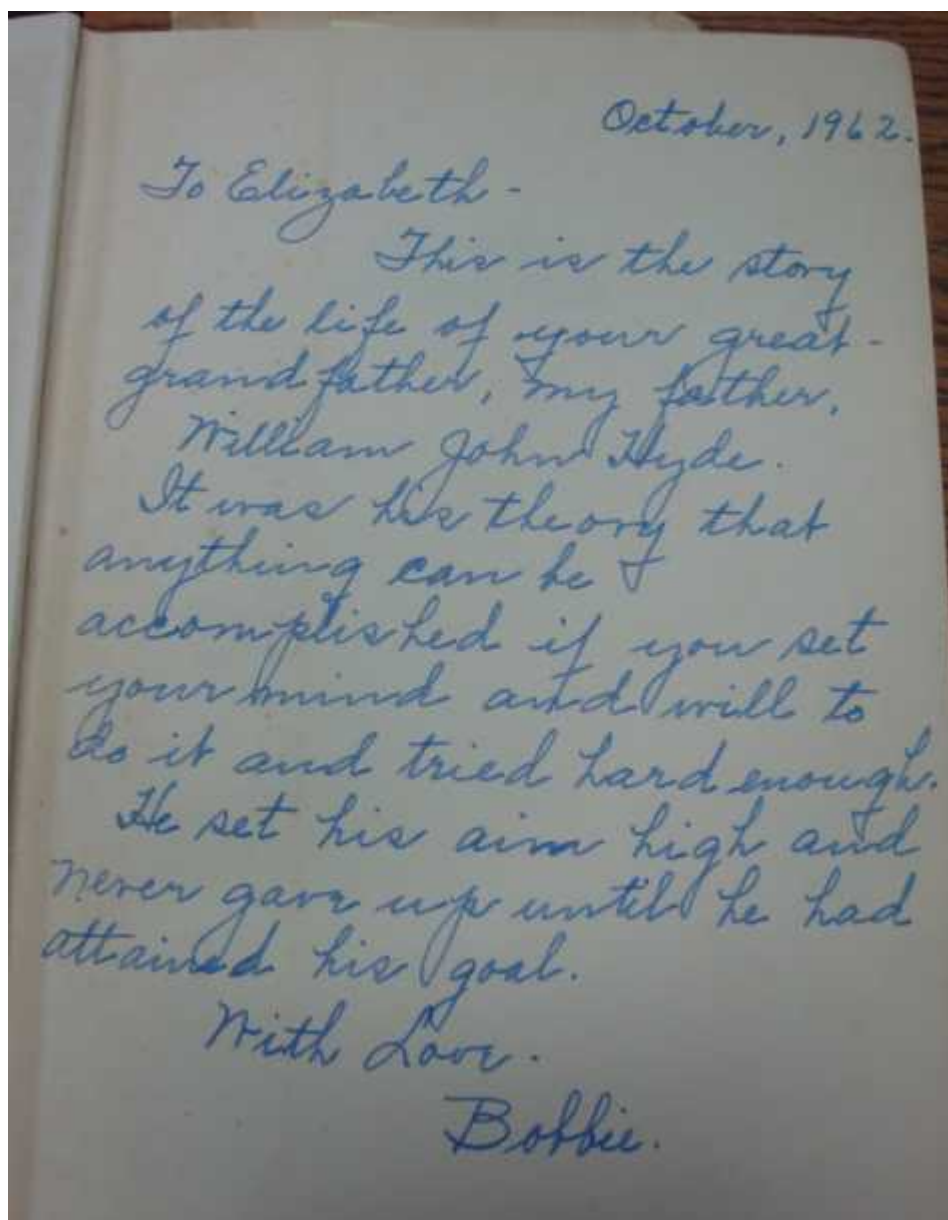 October, 1962.
To Elizabeth -
This is the story
of the life of your great-
grandfather, my father,
William John Hyde.
It was his theory that
anything can be
accomplished if you set
your mind and will to
do it and tried hard enough.
He set his aim high and
never gave up until he had
attained his goal.
With Love.
Bobbie.